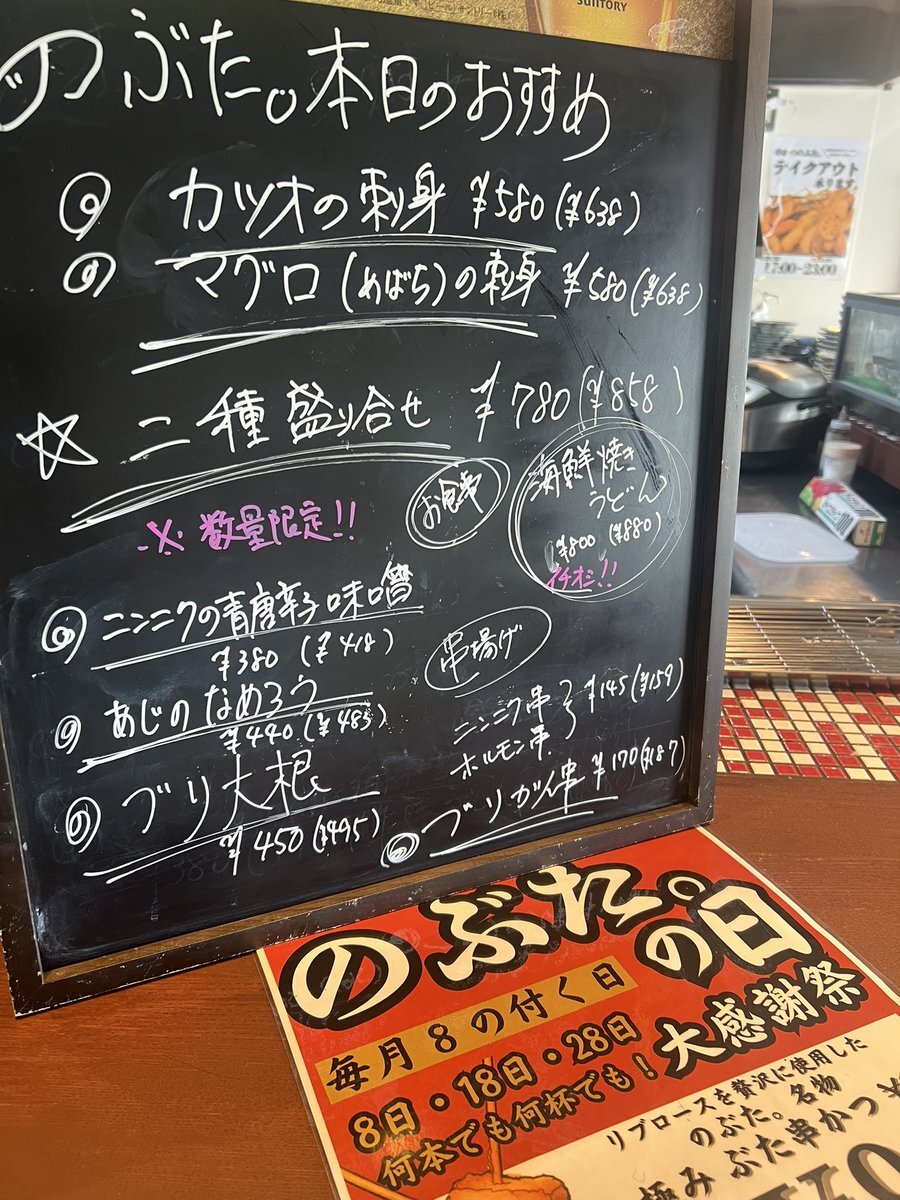 SUNTORY
のぶた。本日のおすすめ
カツオの刺身 ¥580(¥638)
マグロ(めばち)の刺身 ¥580(¥638)
☆ 二種盛り合せ ¥780(¥858)
※数量限定!!
お食事
海鮮焼き
うどん
¥800(¥880)
イチオシ!!
ニンニクの青唐辛子味噌
¥380(¥418)
あじのなめろう
¥440(¥485)
ブリ大根
¥450(¥495)
串揚げ
ニンニク串
ホルモン串 ¥145(¥159)
ブリガイ串 ¥170(¥187)
テイクアウト
承ります。
17:00~23:00
のぶた。
の日
毎月8の付く日
8日・18日・28日
大感謝祭
何本でも何杯でも!
リブロースを贅沢に使用した
のぶた。名物
極み ぶた串かつ